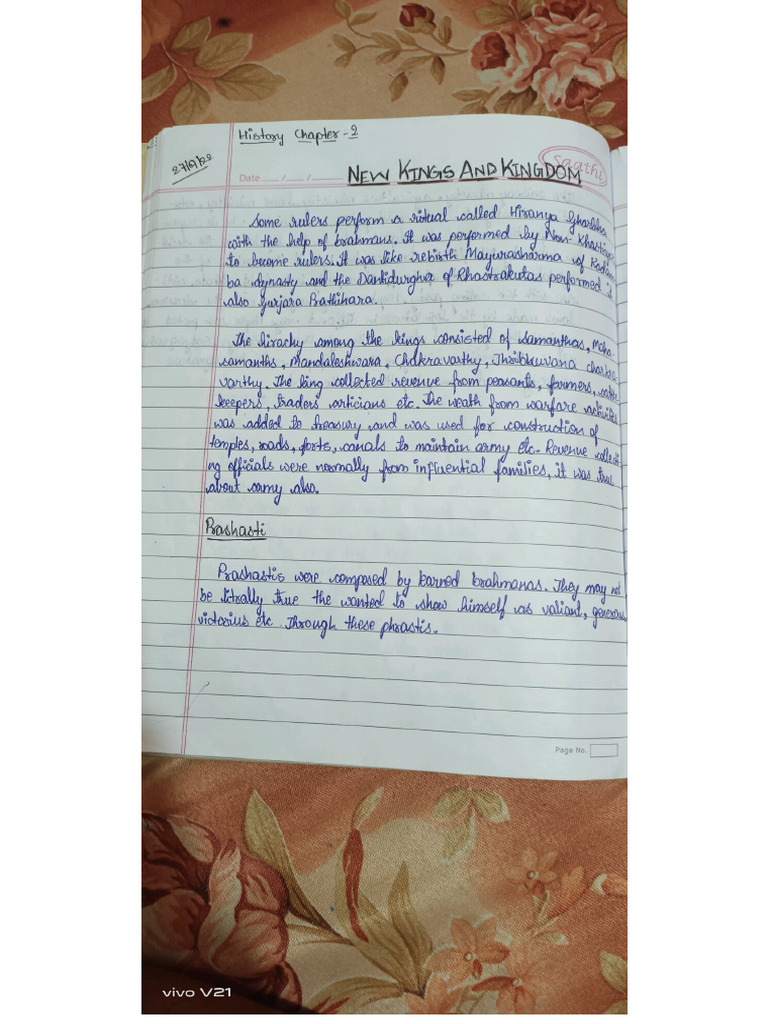 History Chapter-2
27/9/22
Date ...... / ...... / ......
saathi
NEW KINGS AND KINGDOM
Some rulers perform a ritual called Hiranya
with the help of brahmans. It was performed by Non-
to become rulers. It was like rebirth Mayurasharma of Kadam
ba dynasty and the Dantidurgha of Rhastrakutas performed it
also Gurjara Prathihara.
The hirachy among the kings consisted of samanthas, Maha
samanths, Mandaleshwara, Chakravarthy, Thribhuvana chakra
varthy. The king collected revenue from peasants, farmers, cattle
keepers, traders articians etc. The weath from warfare activities
was added to treasury and was used for construction of
temples, roads, forts, canals to maintain army etc. Revenue collecti
ng officials were normally from influential families, it was true
about army also.
Prashasti
Prashastis were composed by learned brahmanas. They may not
be litrally true the wanted to show himself as valiant, generous,
victorius etc Through these phrastis.
Page No.
vivo V21